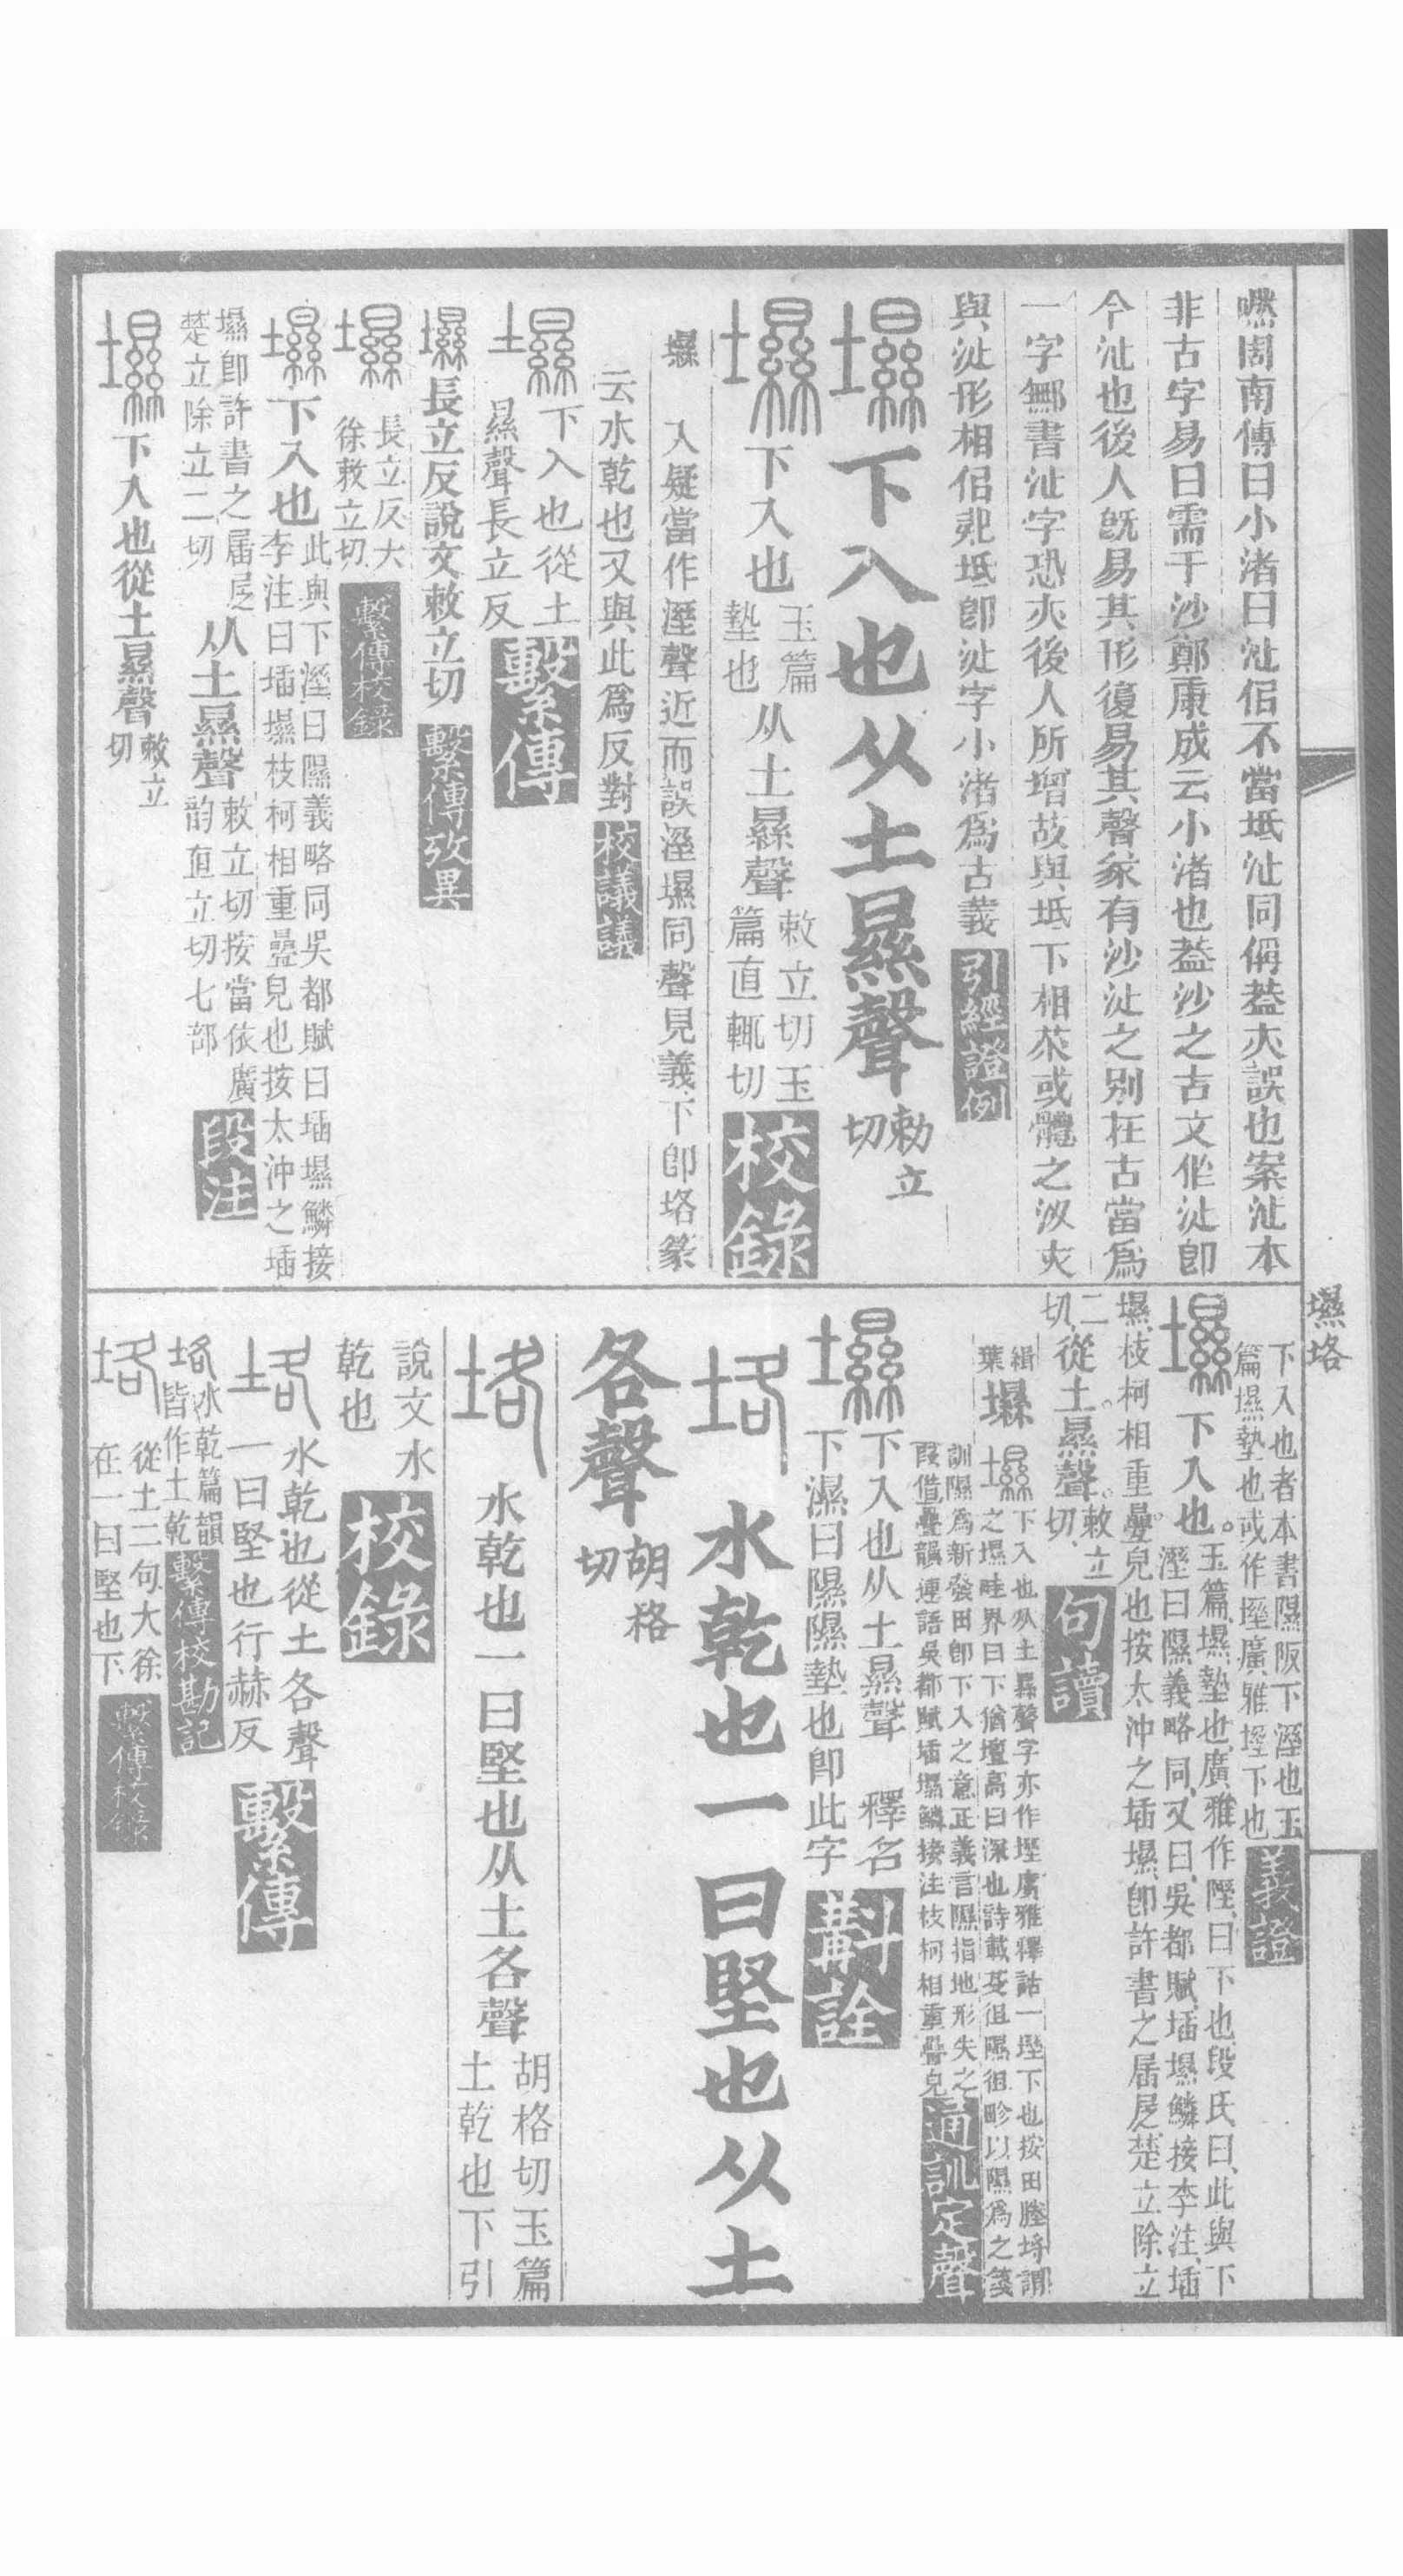 嘿周南傳曰小渚曰沚侣不當坻沚同偁葢夾誤也案沚本
非古字易曰需于沙鄭康成云小渚也葢沙之古文作沚卽
今沚也後人旣易其形復易其聲䝘有沙沚之別在古當爲
一字鄦書沚字恐夾後人所增故與坻下相次或體之汷夾
與沚形相侣㱿坻卽沚字小渚爲古義 引經證例
壨下入也从土㬎聲 敕立切
壨下入也 玉篇墊也 从土㬎聲 敕立切玉篇直輒切 校錄
壨 入疑當作溼聲近而誤溼壨同聲見義下卽垎篆
云水乾也又與此爲反對 校議議
壨下入也從土㬎聲長立反 繫傳
壨長立反說文敕立切 繫傳攷異
壨 長立反大徐敕立切 繫傳校錄
壨下入也 此與下溼曰隰義略同吳都賦曰㙮壨鱗接
李注曰㙮壨枝柯相重疊皃也按太沖之㙮
壨卽許書之届㞕楚立除立二切 从土㬎聲 敕立切按當依廣韵直立切七部 段注
壨下入也從土㬎聲 敕立切
壨垎
下入也者本書隰阪下溼也玉
篇壨墊也或作㙷廣雅㙷下也 義證
壨下入也。玉篇壨墊也廣雅作隰曰下也段氏曰此與下
溼曰隰義略同又曰吳都賦㙮壨鱗接李注㙮
壨枝柯相重疊皃也按太沖之㙮壨卽許書之届㞕楚立除立
二切 從土㬎聲。敕立切 句讀
緝葉 壨 下入也从土㬎聲字亦作㙷廣雅釋詁一㙷下也按田塍埒謂
之壨畦界曰下猶壇高曰深也詩載芟徂隰徂畛以隰爲之箋
訓隰爲新發田卽下入之意正義言隰指地形失之
叚借疊韻連語吳都賦㙮壨鱗接注枝柯相重疊皃 通訓定聲
壨下入也从土㬎聲 釋名
下濕曰隰隰墊也卽此字 斠詮
垎 水乾也一曰堅也从土
各聲 胡格切
垎 水乾也一曰堅也从土各聲 胡格切玉篇土乾也下引
說文水乾也 校錄
垎 水乾也從土各聲
一曰堅也行赫反 繫傳
垎 水乾篇韻皆作土乾 繫傳校勘記
垎 從土二句大徐在一曰堅也下 繫傳校錄